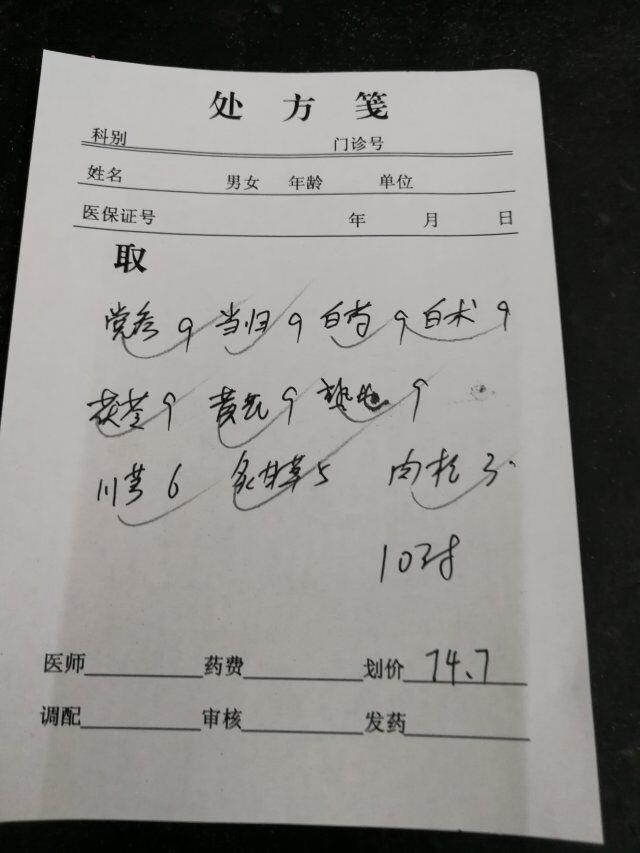 处方笺
科别 门诊号
姓名 男女 年龄 单位
医保证号 年 月 日
取
党参 9 当归 9 白芍 9 白术 9
茯苓 9 黄芪 9 熟地 9
川芎 6 炙甘草 5 肉桂 3
10付
医师 药费 划价 74.7
调配 审核 发药